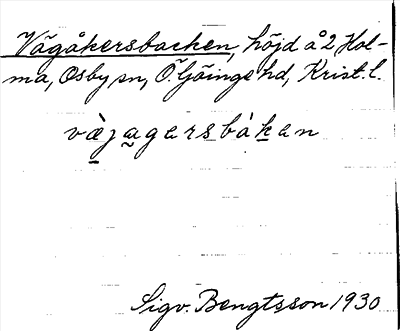 Vägåkersbacken, höjd å 2 Hol-
ma, Osby sn, Ö. Göinge hd, Krist. l.
væ̀jagersbàkan
Sigv. Bengtsson 1930